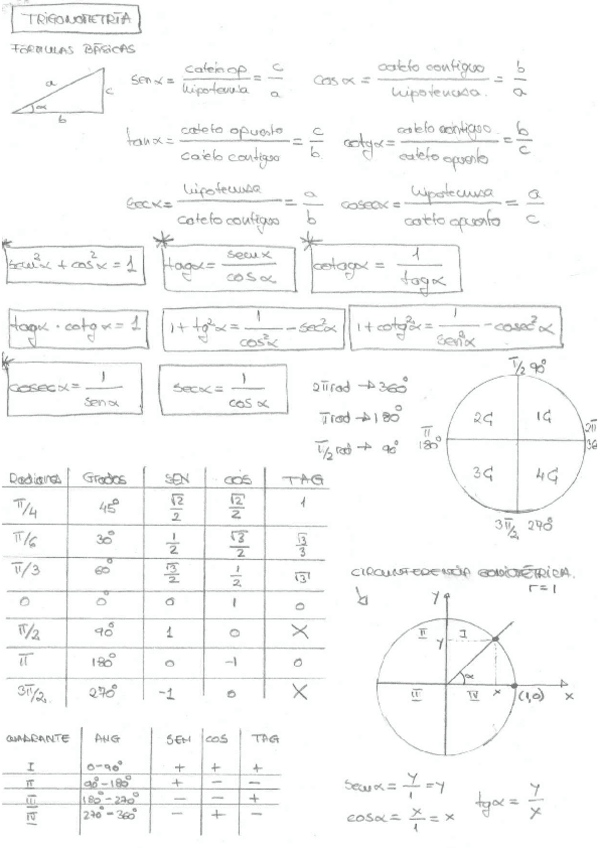 TRIGONOMETRÍA
FÓRMULAS BÁSICAS
a
c
α
b
senα = cateto op / hipotenusa = c/a
cosα = cateto contiguo / hipotenusa = b/a
tanα = cateto opuesto / cateto contiguo = c/b
cotgα = cateto contiguo / cateto opuesto = b/c
secα = hipotenusa / cateto contiguo = a/b
cosecα = hipotenusa / cateto opuesto = a/c
sen²α + cos²α = 1
tagα = senα / cosα
cotagα = 1 / tagα
tagα · cotgα = 1
1 + tg²α = 1/cos²α - sec²α
1 + cotg²α = 1/sen²α - cosec²α
cosecα = 1 / senα
secα = 1 / cosα
2π rad → 360°
π rad → 180°
π/2 rad → 90°
π/2 90°
2C 1C
π 180°
2π
3C 4C
3π/2 270°
Radianes Grados SEN COS TAG
π/4 45° √2/2 √2/2 1
π/6 30° 1/2 √3/2 √3/3
π/3 60° √3/2 1/2 √3
0 0° 0 1 0
π/2 90° 1 0 X
π 180° 0 -1 0
3π/2 270° -1 0 X
CIRCUNFERENCIA GONIOMÉTRICA.
r=1
y
II I
y
α
III IV x (1,0) x
CUADRANTE ANG SEN COS TAG
I 0-90° + + +
II 90°-180° + - -
III 180°-270° - - +
IV 270°-360° - + -
senα = y/1 = y
cosα = x/1 = x
tgα = y/x